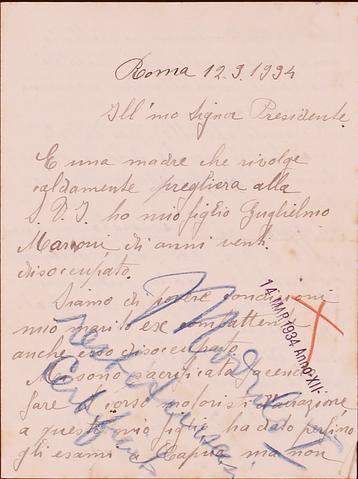 Roma 12.3.1934
Ill'mo Signor Presidente
E una madre che rivolge
caldamente pregliera alla
S.V.I. ho mio figlio Guglielmo
Marconi di anni venti
disoccupato.
Siamo di povere condizioni
mio marito ex combattente
anche esso disoccupato
14 MAR 1934 Anno XII
Mi sono sacrificata facendo
fare il corso
a questo mio figlio ha dato perfino
gli esami a Capua ma non